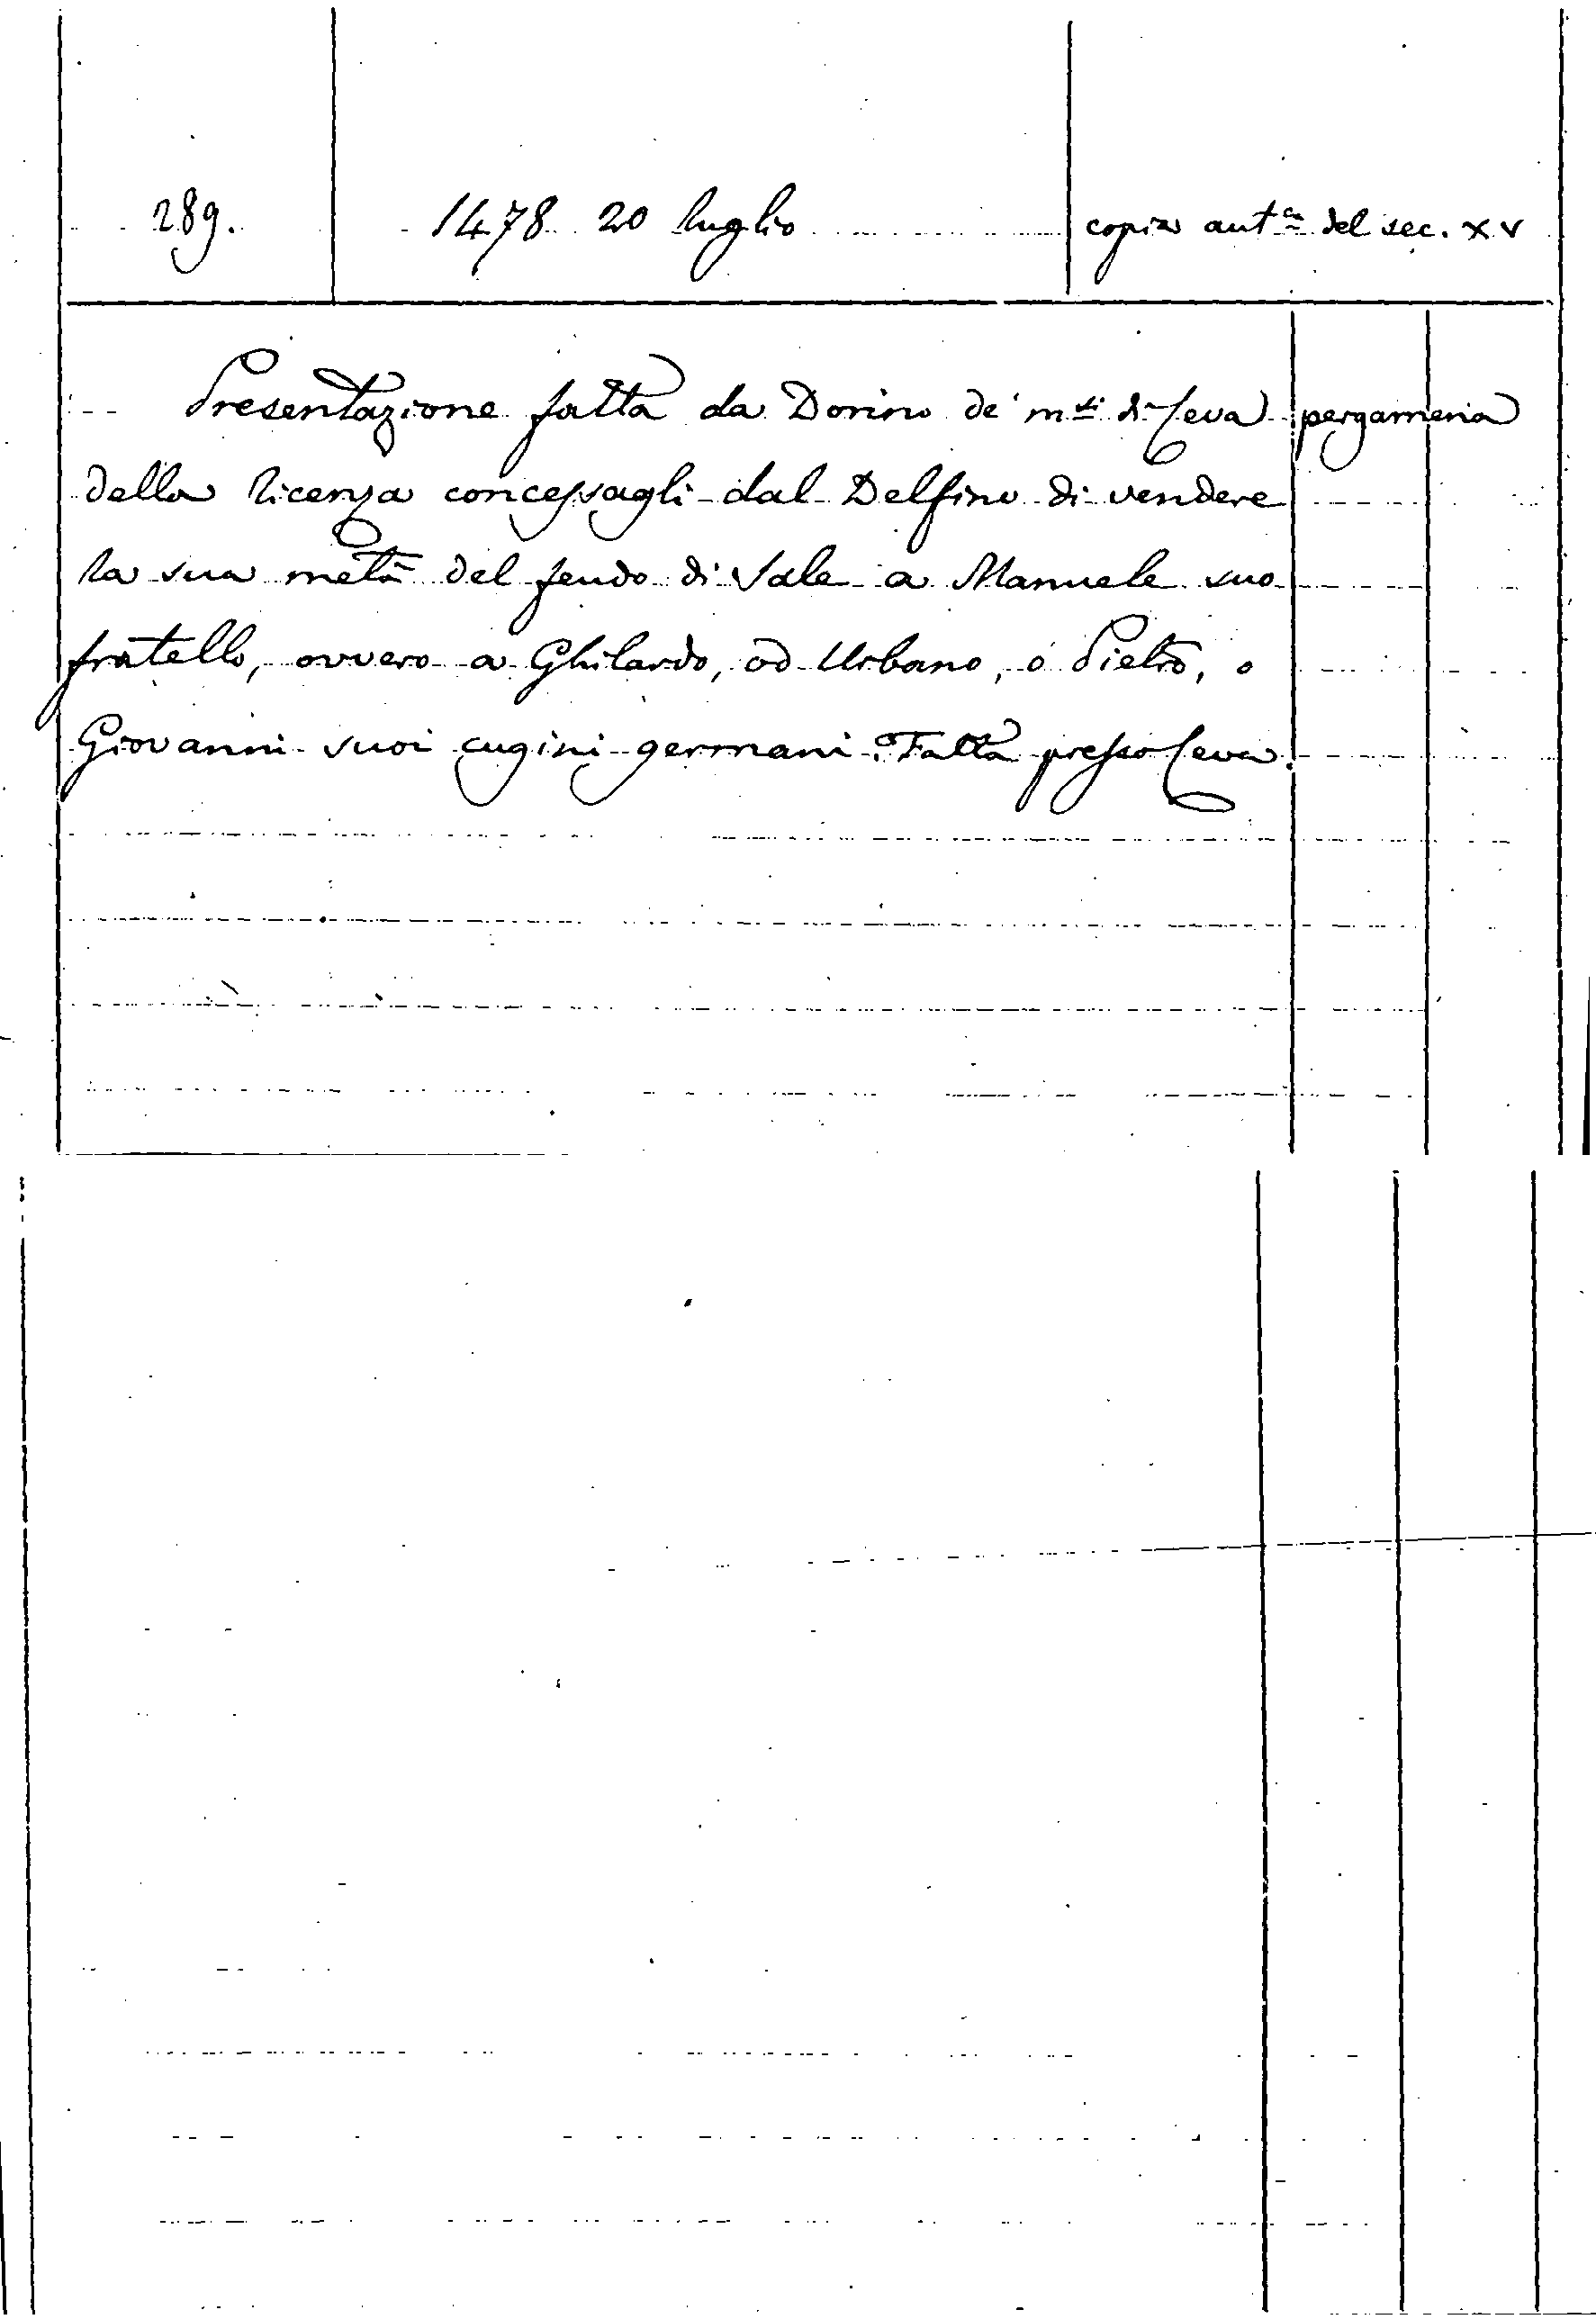 289. 1478 20 luglio copia aut.ca del sec. XV
Presentazione fatta da Dorino de' m.si di Ceva pergamena
della licenza concessagli dal Delfino di vendere
la sua metà del feudo di Sale a Manuele suo
fratello, ovvero a Ghilardo, od Urbano, o Pietro, o
Giovanni suoi cugini germani. Fatta presso Ceva.